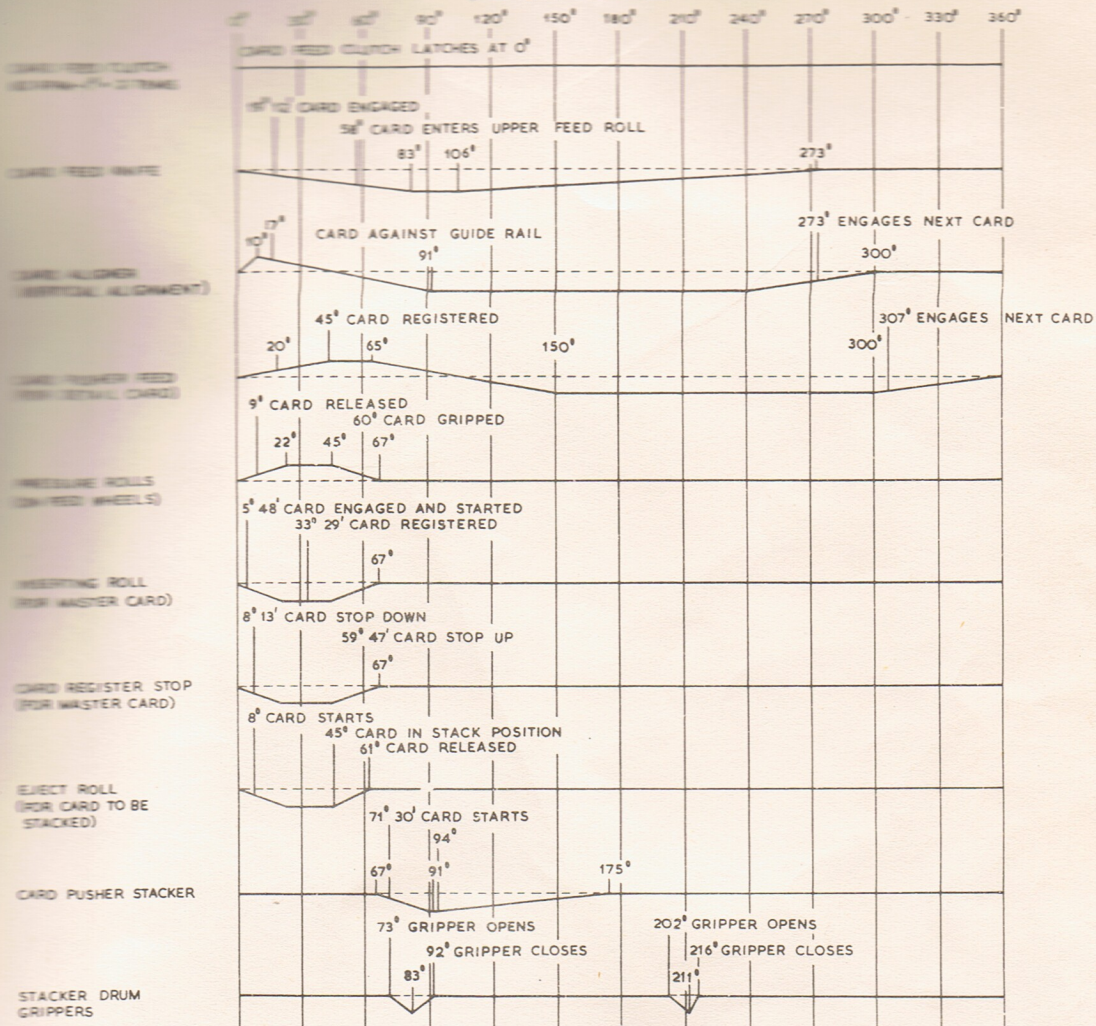 0° 30° 60° 90° 120° 150° 180° 210° 240° 270° 300° 330° 360°
CARD FEED CLUTCH LATCHES AT 0°
CARD FEED CLUTCH
CARD ENGAGED
58° CARD ENTERS UPPER FEED ROLL
83° 106° 273°
CARD FEED KNIFE
273° ENGAGES NEXT CARD
17°
10° CARD AGAINST GUIDE RAIL
91° 300°
CARD ALIGNER
(VERTICAL ALIGNMENT)
45° CARD REGISTERED 307° ENGAGES NEXT CARD
20° 65° 150° 300°
CARD PUSHER FEED
(FOR DETAIL CARD)
9° CARD RELEASED
60° CARD GRIPPED
22° 45° 67°
PRESSURE ROLLS
(ON FEED WHEELS)
5° 48' CARD ENGAGED AND STARTED
33° 29' CARD REGISTERED
67°
INSERTING ROLL
(FOR MASTER CARD)
8° 13' CARD STOP DOWN
59° 47' CARD STOP UP
67°
CARD REGISTER STOP
(FOR MASTER CARD)
8° CARD STARTS
45° CARD IN STACK POSITION
61° CARD RELEASED
EJECT ROLL
(FOR CARD TO BE
STACKED)
71° 30' CARD STARTS
94°
67° 91° 175°
CARD PUSHER STACKER
73° GRIPPER OPENS 202° GRIPPER OPENS
92° GRIPPER CLOSES 216° GRIPPER CLOSES
83° 211°
STACKER DRUM
GRIPPERS